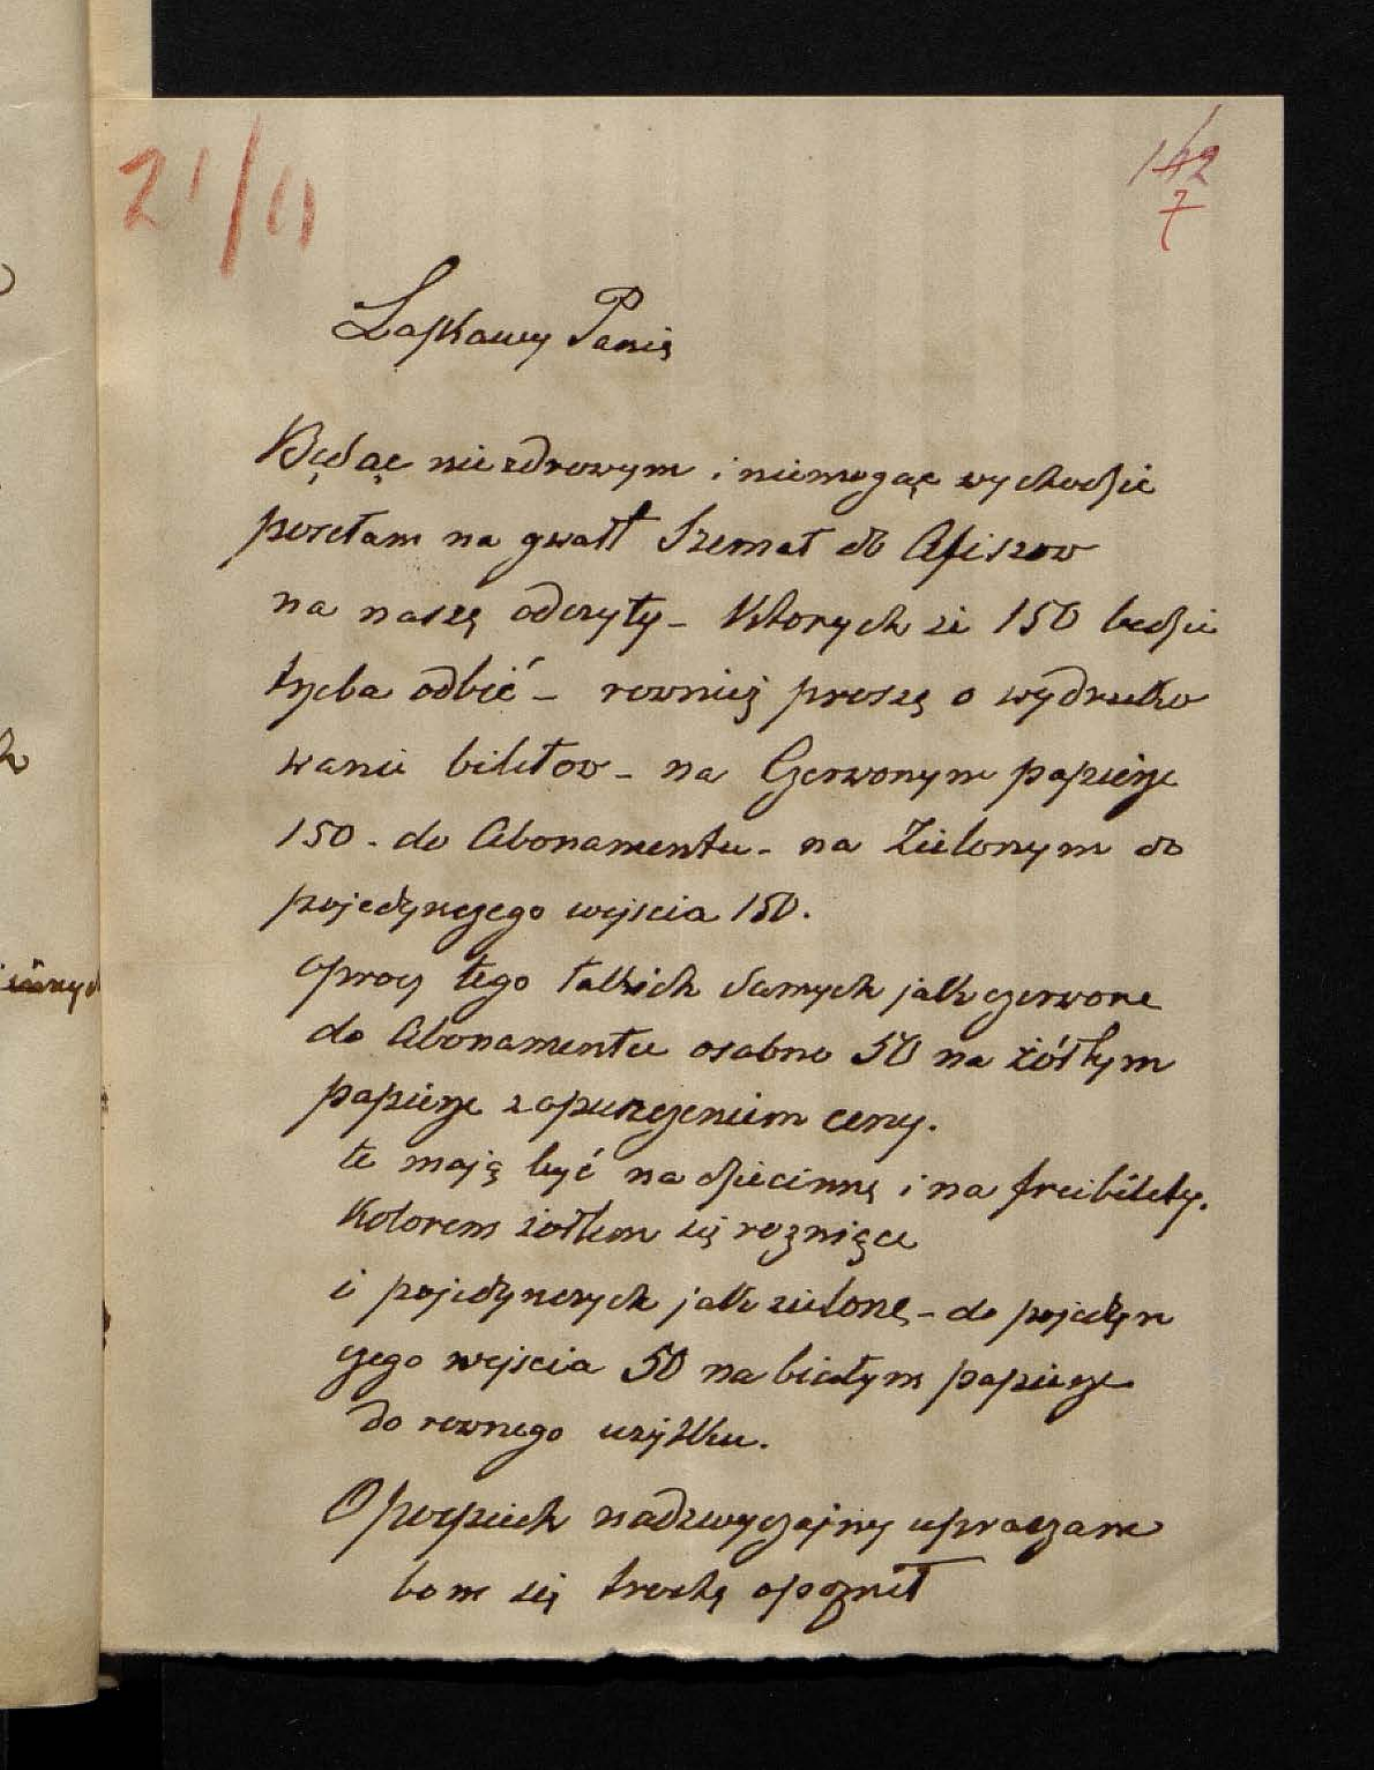 21/11
142
7
Łaskawy Panię
Będąc niezdrowym i niemogąc wychodzić
posełam na gwałt Szemat do Afiszow
na naszę odczyty – Ktorych zi 150 bedzie
trzeba odbić – rownież proszę o wydruko
wanie biletow – na Czerwonym papierze
150 – do Abonamentu – na Zielonym do
pojedynczego wejscia 150.
oprocz tego takich samych jak czerwone
do Abonamentu osobno 50 na żółtym
papierze z opuszczeniem ceny.
te mają być na dziecinnę i na freibilety.
Kolorem żołtem się rozniące
i pojedynczych jak zielonę – do pojedyn
czego wejscia 50 na białym papierze
do rownego użytku.
O pospiech nadzwyczajny upraszam
bom się trochę opoznił